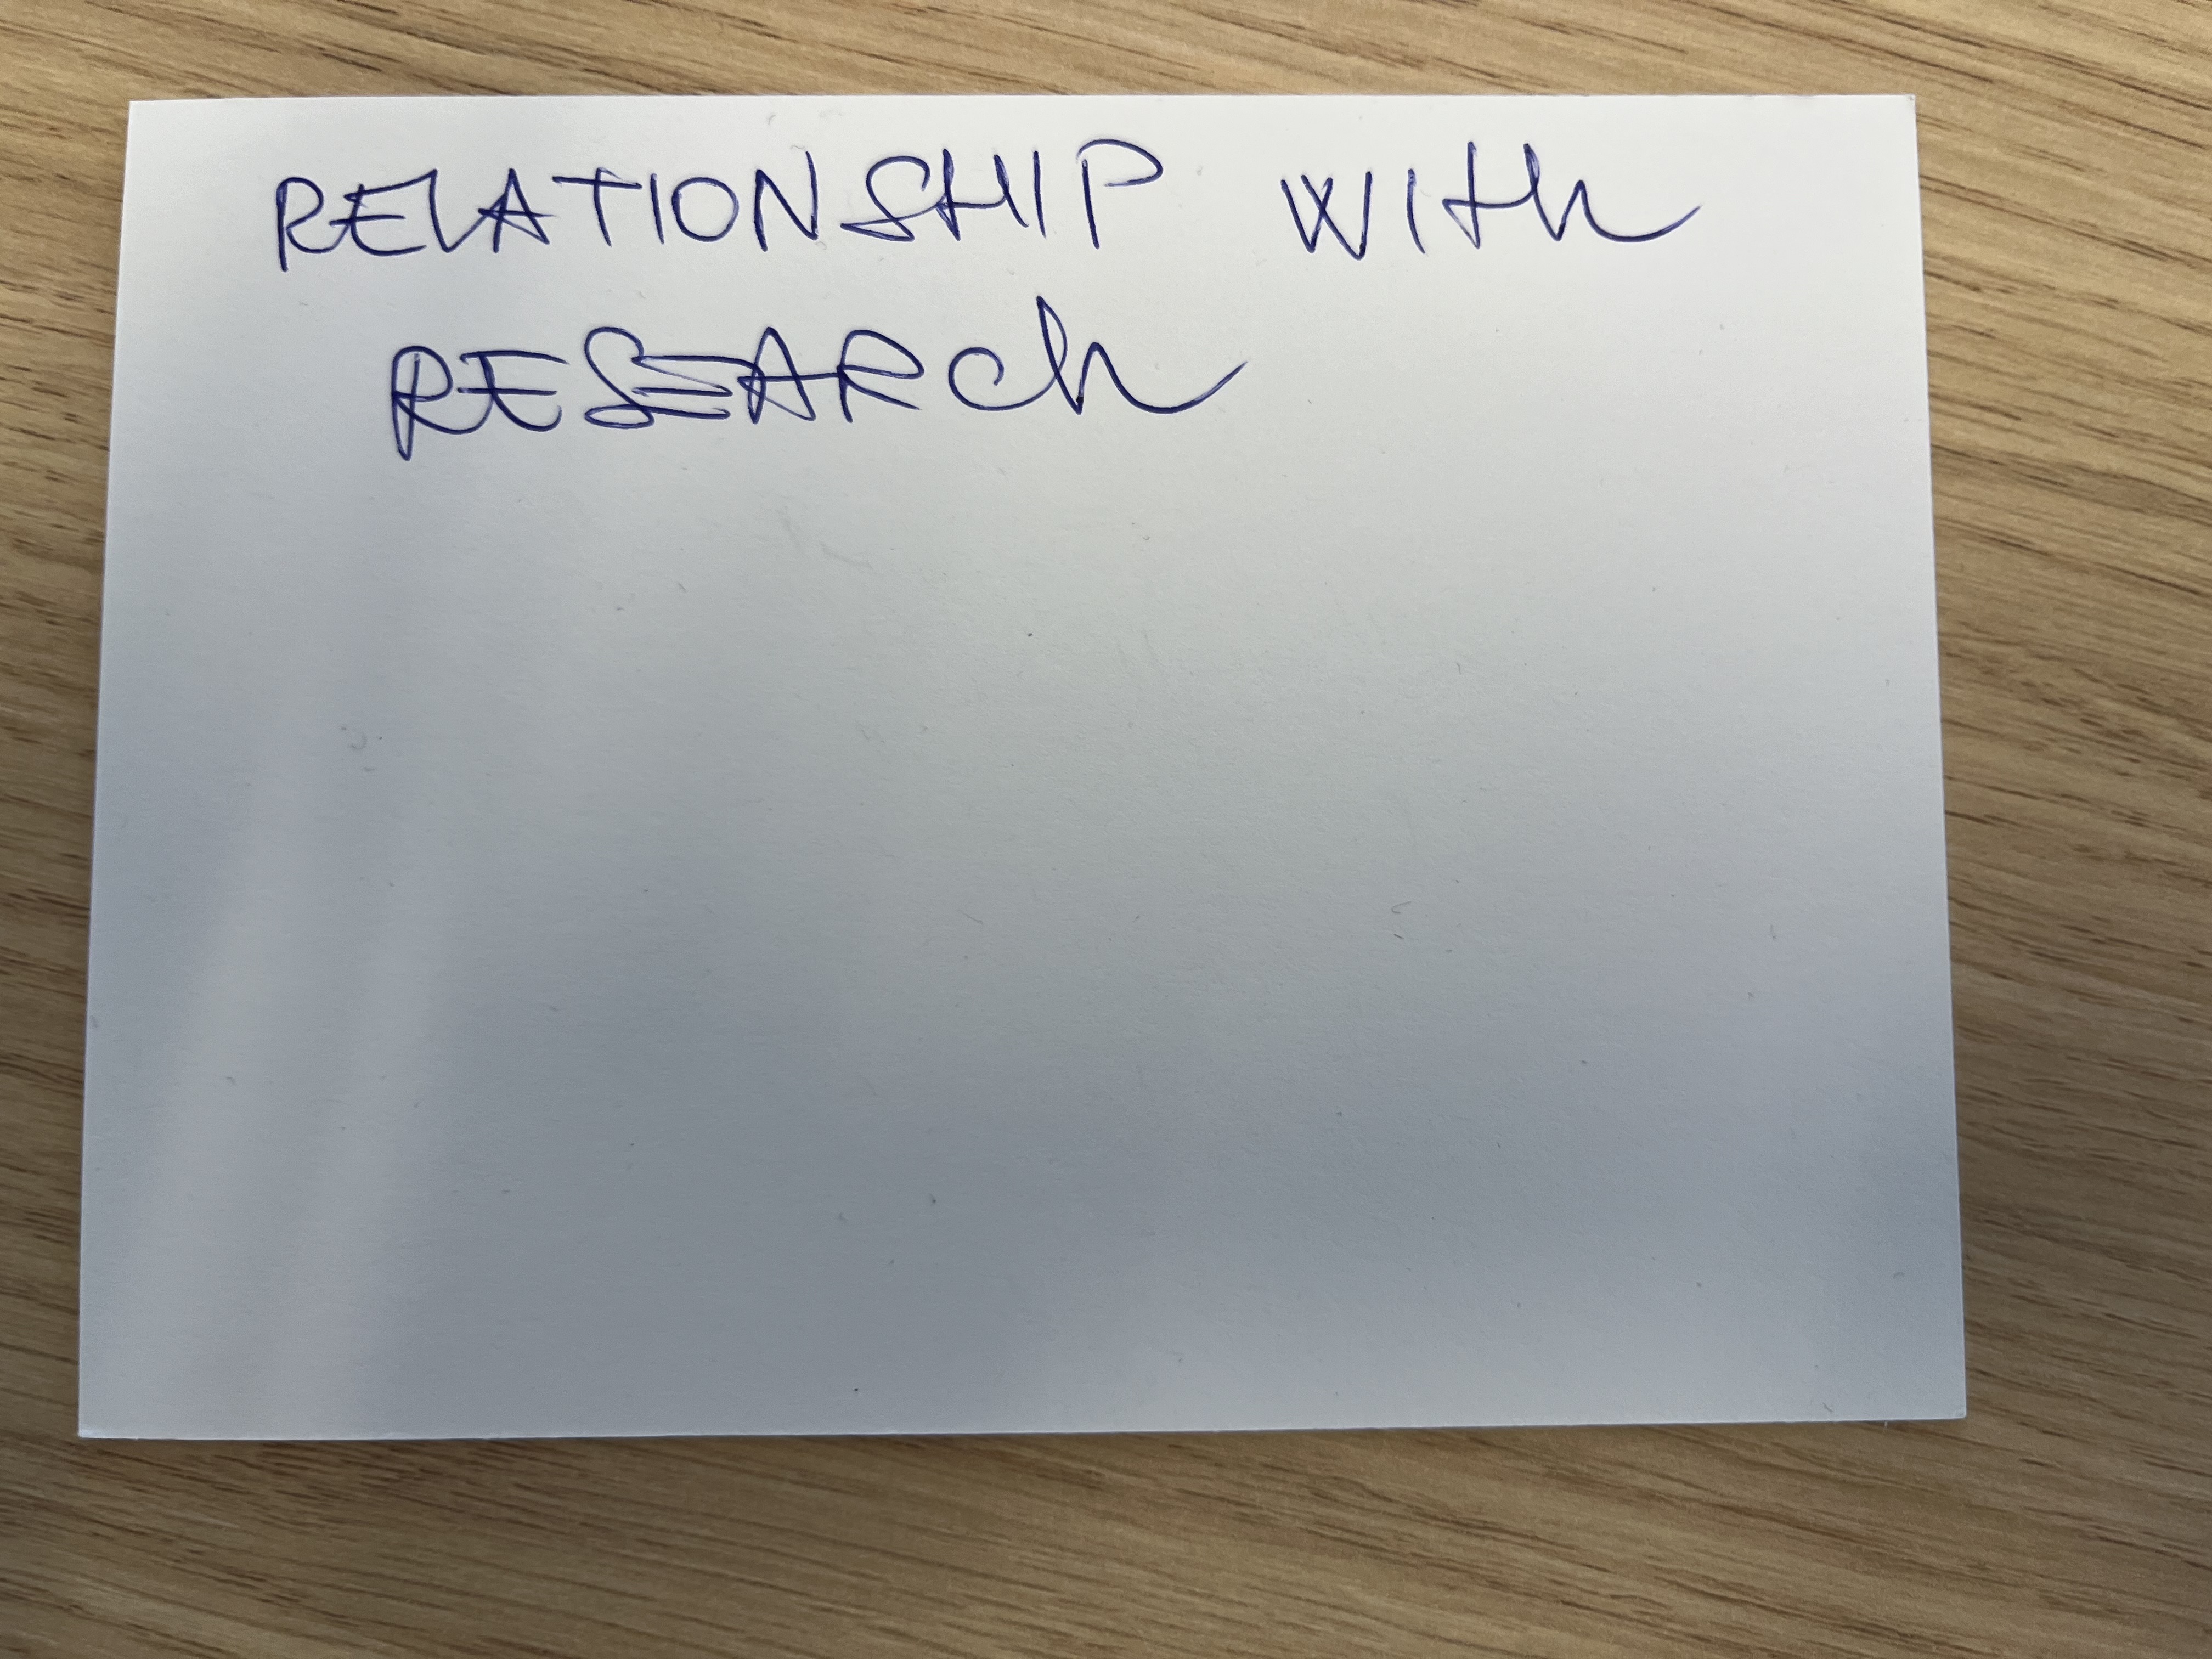 RELATIONSHIP WITh
RESEARCh